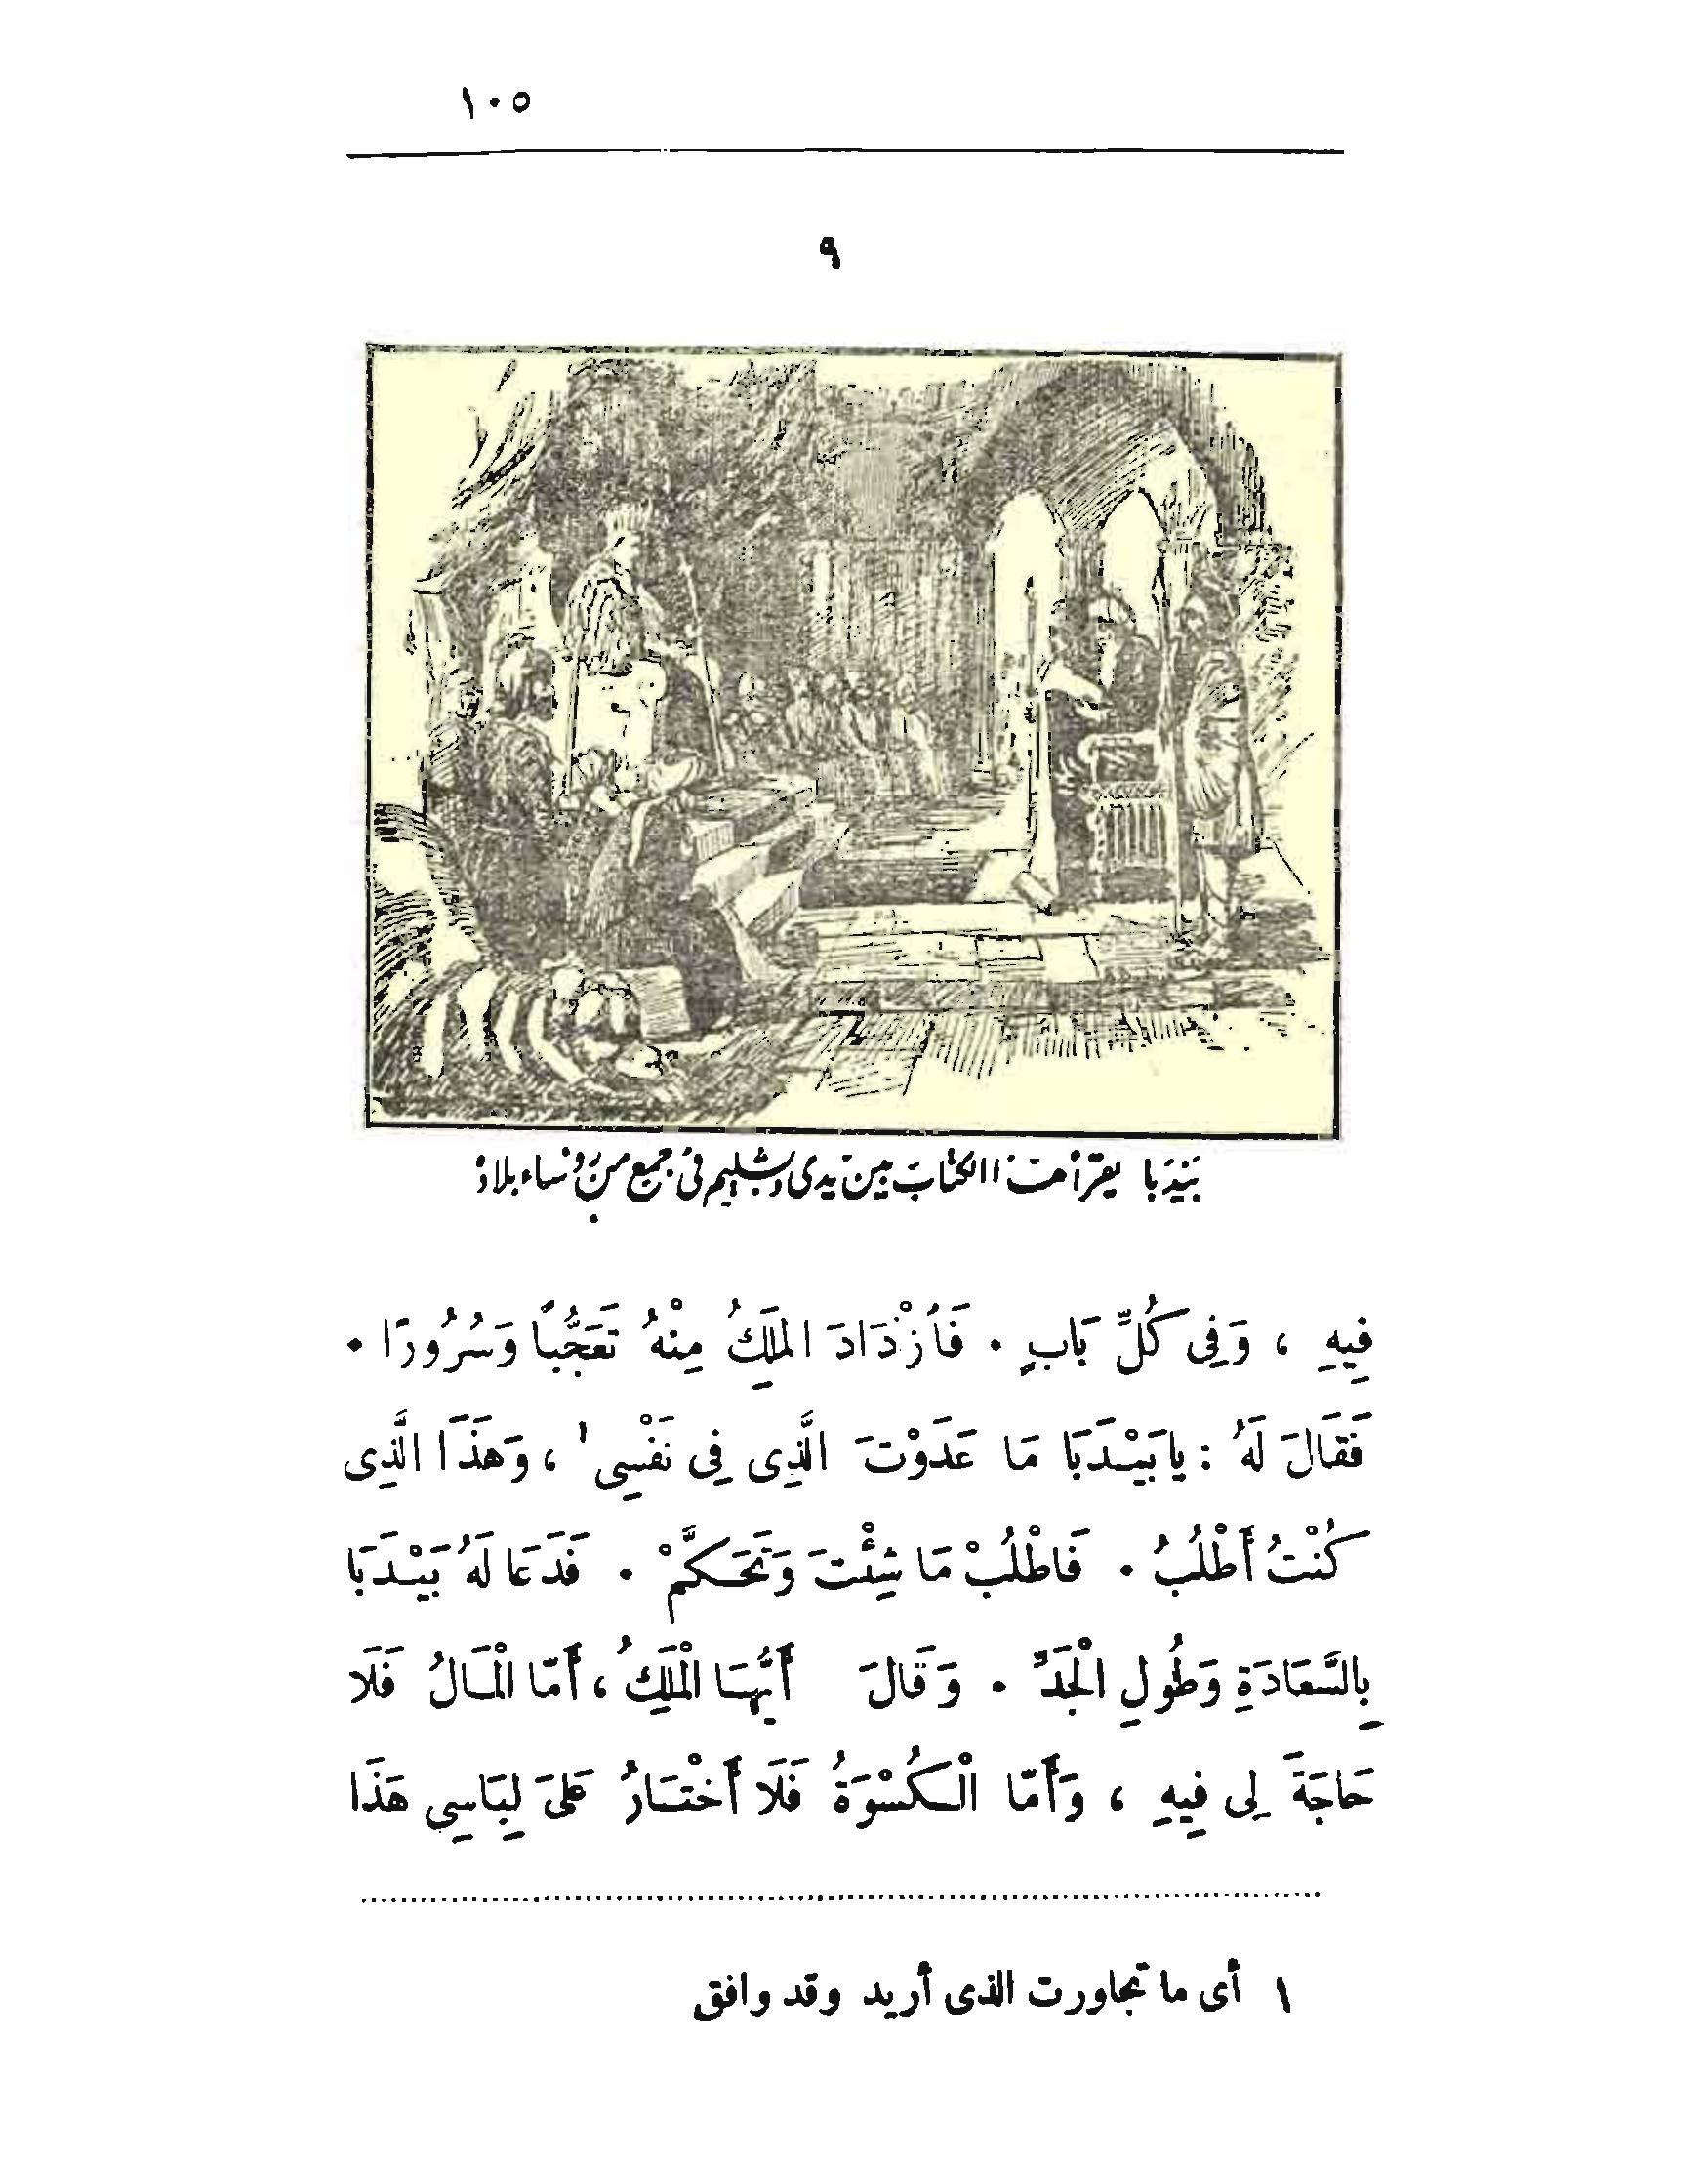 ١٠٥
٩
بَيْدَبا يقرأ هذا الكتاب بين يدى دبشليم فى جمع من رؤساء بلاده
فِيهِ ، وَفِى كُلِّ بَابٍ . فَاَزْدَادَ المَلِكُ مِنْهُ تَعَجُّباً وَسُرُورًا .
فَقَالَ لَهُ : يا بَيْدَبَا مَا عَدَوْتَ الَّذِى فِى نَفْسِى ١ ، وَهَذَا الَّذِى
كُنْتُ أَطْلُبُ . فَاطْلُبْ مَا شِئْتَ وَتَحَكَّمْ . فَدَعَا لَهُ بَيْدَبَا
بِالسَّعَادَةِ وَطُولِ الْجَدِّ . وَقَالَ أَيُّهَا الْمَلِكُ ، أَمَّا الْمَالُ فَلَا
حَاجَةَ لِى فِيهِ ، وَأَمَّا الْكُسْوَةُ فَلَا أَخْتَارُ عَلَى لِبَاسِى هَذَا
١ أى ما تجاورت الذى أريد وقد وافق